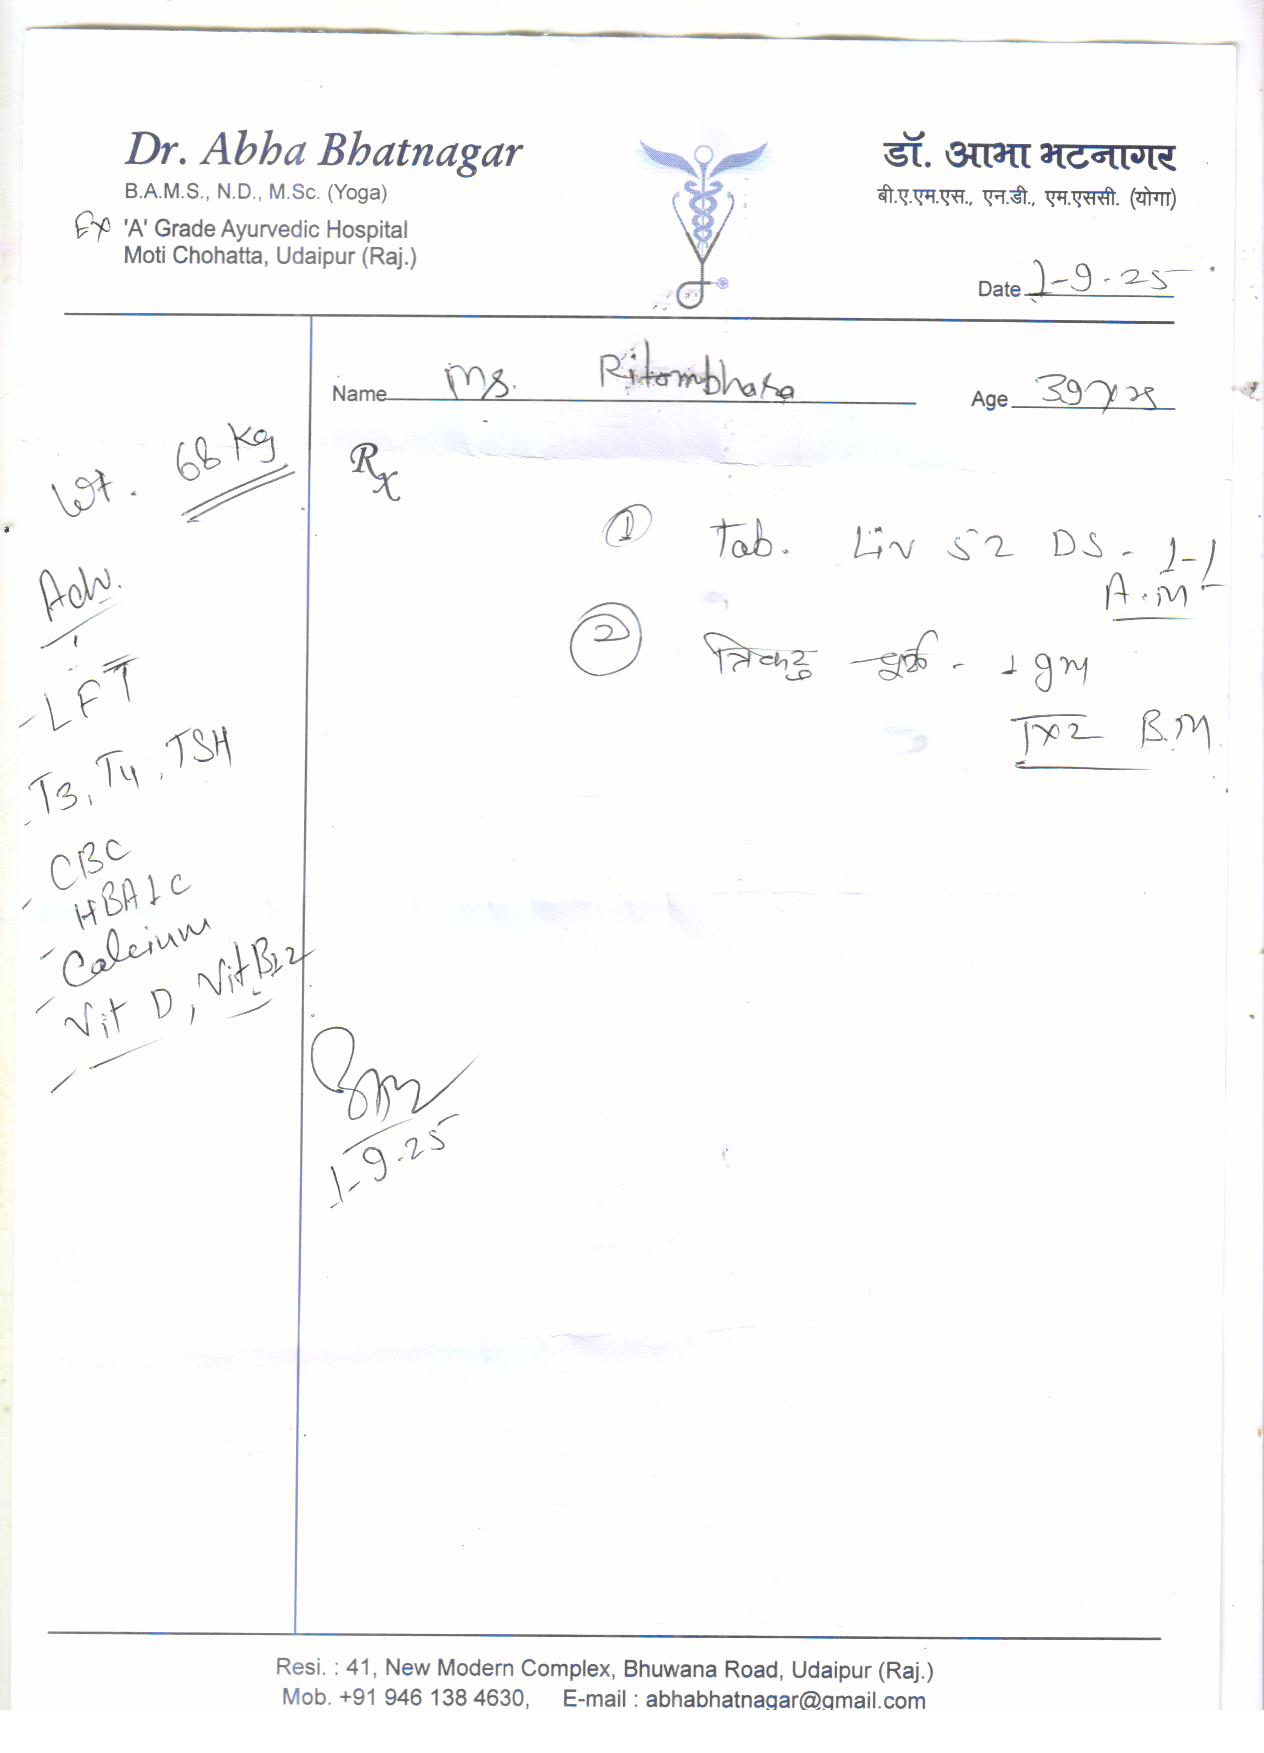 Dr. Abha Bhatnagar
B.A.M.S., N.D., M.Sc. (Yoga)
Ex 'A' Grade Ayurvedic Hospital
Moti Chohatta, Udaipur (Raj.)
डॉ. आभा भटनागर
बी.ए.एम.एस., एन.डी., एम.एससी. (योगा)
Date 1-9.25
Name Ms. Ritambhara Age 39 yrs
Wt. 68 Kg
Adv.
- LFT
- T3, T4, TSH
- CBC
- HBA1C
- Calcium
- Vit D, Vit B12
Rx
1 Tab. Liv 52 DS - 1-1
A.M
2 त्रिकटु चूर्ण - 1 gm
1x2 B.M.
1-9.25
Resi. : 41, New Modern Complex, Bhuwana Road, Udaipur (Raj.)
Mob. +91 946 138 4630, E-mail : abhabhatnagar@gmail.com